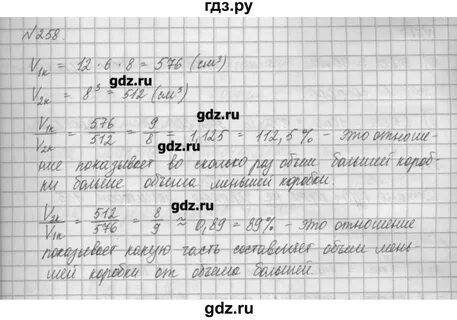 №258
V1к = 12 · 6 · 8 = 576 (см³)
gdz.ru
V2к = 8³ = 512 (см³)
gdz.ru gdz.ru
V1к/V2к = 576/512 = 9/8 = 1,125 = 112,5% – это отноше-
ние показывает во сколько раз объем большей короб-
ки больше объема меньшей коробки.
gdz.ru
V2к/V1к = 512/576 = 8/9 ≈ 0,89 = 89% – это отношение
gdz.ru gdz.ru
показывает какую часть составляет объем мень-
шей коробки от объема большей.
gdz.ru